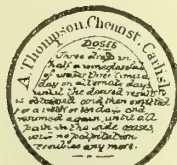 A. Thompson, Chemist, Carlisle
DOSES
Three drops in
half a wineglassful
of water three times a
day on alternate days
until the desired result
is obtained and then omitted
for a week or ten days and
resumed again until all
pain in the side ceases,
and no palpitation
troubles any more.